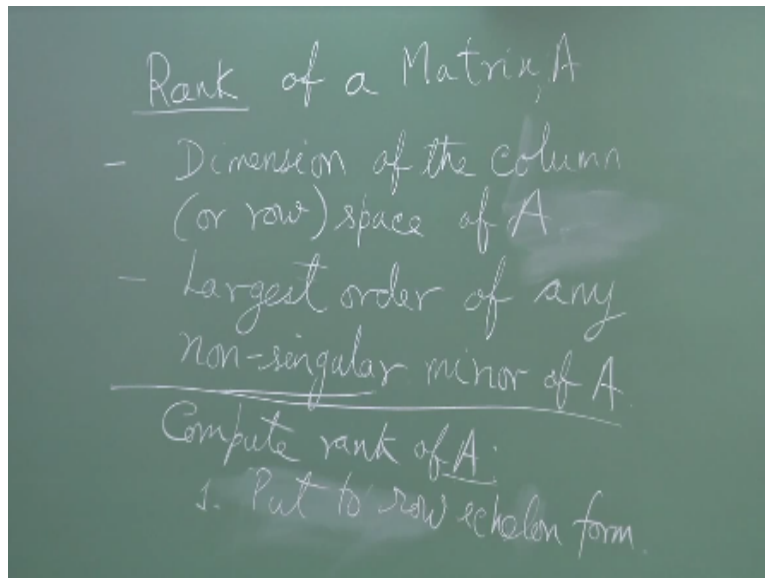 Rank of a Matrix, A
- Dimension of the column
(or row) space of A
- Largest order of any
non-singular minor of A.
Compute rank of A:
1. Put to row echelon form.